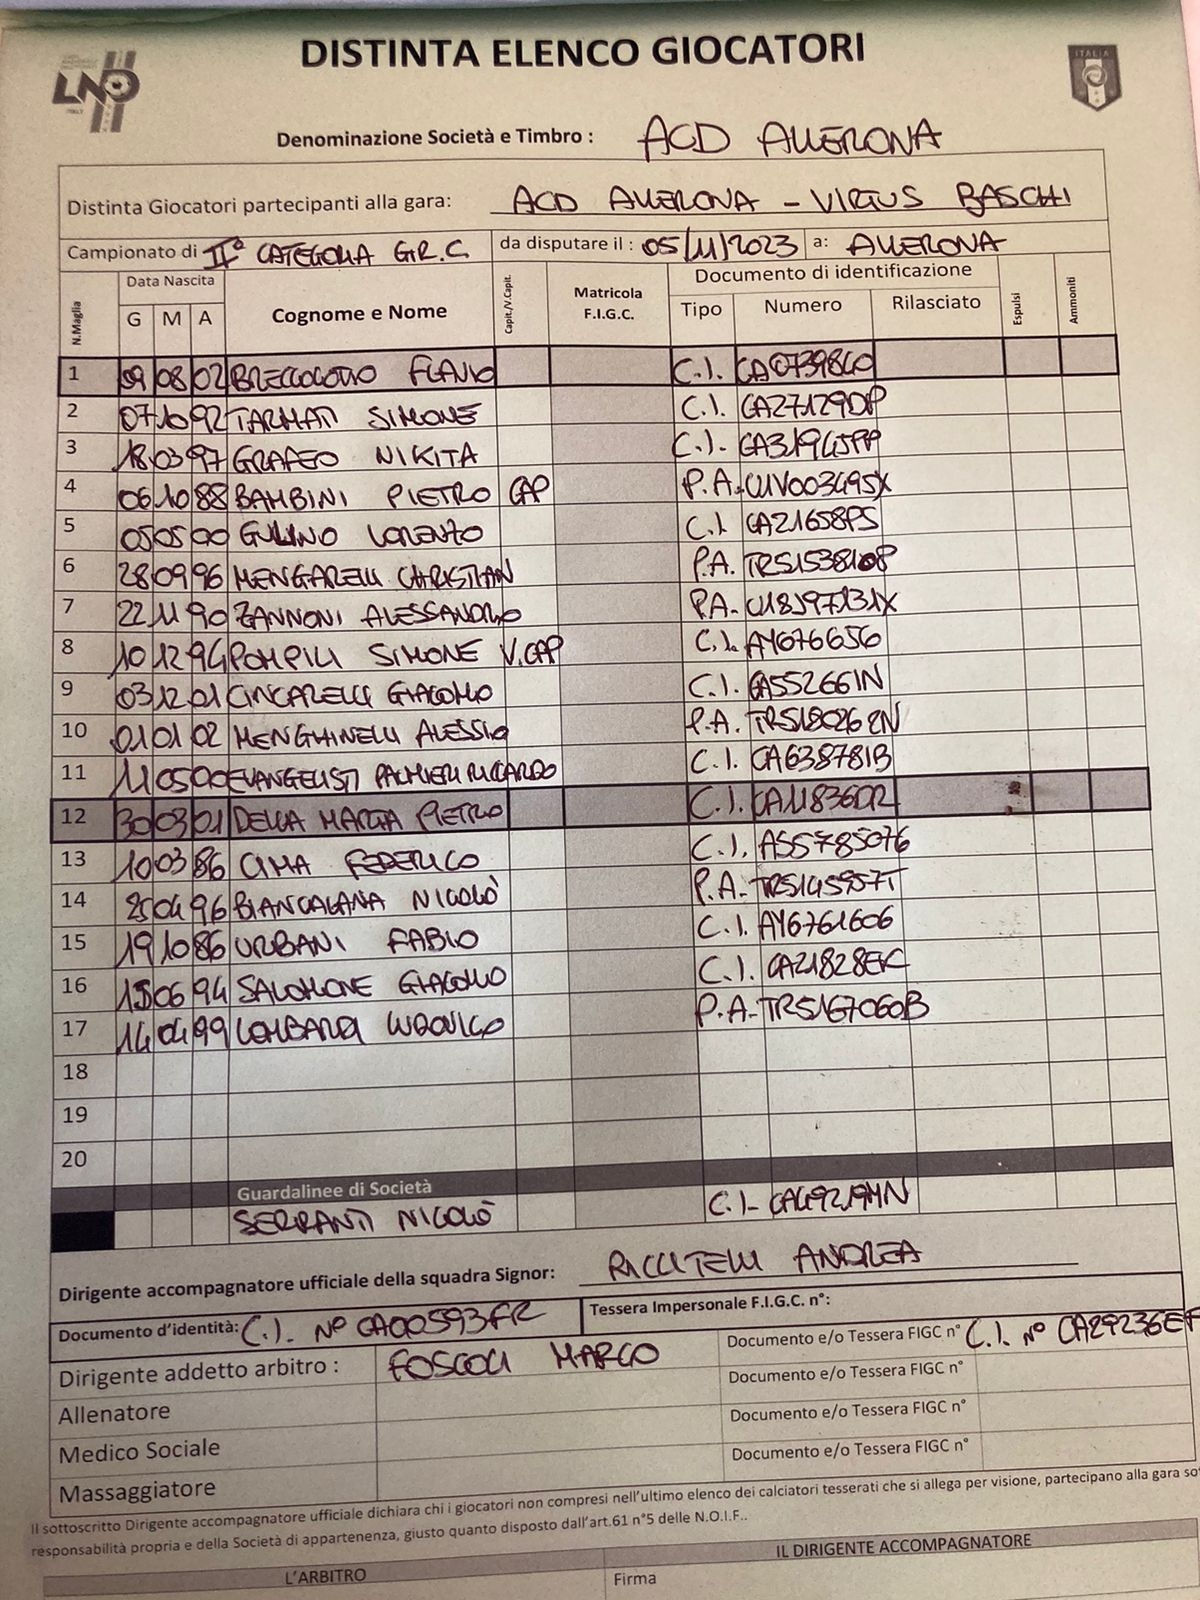 DISTINTA ELENCO GIOCATORI
LND
ITALIA
Denominazione Società e Timbro : ACD ALLERONA
Distinta Giocatori partecipanti alla gara: ACD ALLERONA - VIRTUS BASCHI
Campionato di II° CATEGORIA GIR. C da disputare il : 05/11/2023 a: ALLERONA
N.Maglia Data Nascita Cognome e Nome Capit./V.Capit. Matricola F.I.G.C. Documento di identificazione Espulsi Ammoniti
G M A Tipo Numero Rilasciato
1 09 08 02 FLAVIO C.I.
2 07 10 92 TARMATI SIMONE C.I. CA27129DP
3 18 03 97 GRAFEO NIKITA C.I. CA31945PP
4 06 10 88 BAMBINI PIETRO CAP P.A. U1V003495X
5 05 05 00 GULINO LORENZO C.I. CA21658PS
6 28 09 96 MENGARELLI CHRISTIAN P.A.
7 22 11 90 ZANNONI ALESSANDRO P.A. U18J97131X
8 10 12 94 POMPILI SIMONE V.CAP C.I. AY676656
9 03 12 01 CINCARELLI GIACOMO C.I. CA55266IN
10 01 01 02 MENGHINELLI ALESSIO P.A. TR5180262N
11 11 05 00 EVANGELISTI PALMIERI RICCARDO C.I. CA63878IB
12 30 03 01 DELLA MARTA PIETRO C.I. CA11836DR
13 10 03 86 CIMA FEDERICO C.I. AS5785076
14 25 04 96 BIANCALANA NICOLÒ P.A. TR5145957T
15 19 10 86 URBANI FABIO C.I. AY6761606
16 15 06 94 SALOMONE GIACOMO C.I. CA21828EK
17 14 04 99 LOMBARDI LUDOVICO P.A. TR5167060B
18
19
20
Guardalinee di Società
SERRANTI NICOLÒ C.I. CA49219MN
Dirigente accompagnatore ufficiale della squadra Signor: RICCITELLI ANDREA
Documento d'identità: C.I. N° CA00593FR Tessera Impersonale F.I.G.C. n°:
Dirigente addetto arbitro : FOSCOLI MARCO Documento e/o Tessera FIGC n° C.I. N° CA29236EF
Allenatore Documento e/o Tessera FIGC n°
Medico Sociale Documento e/o Tessera FIGC n°
Massaggiatore Documento e/o Tessera FIGC n°
Il sottoscritto Dirigente accompagnatore ufficiale dichiara chi i giocatori non compresi nell'ultimo elenco dei calciatori tesserati che si allega per visione, partecipano alla gara
responsabilità propria e della Società di appartenenza, giusto quanto disposto dall'art.61 n°5 delle N.O.I.F..
L'ARBITRO IL DIRIGENTE ACCOMPAGNATORE
Firma